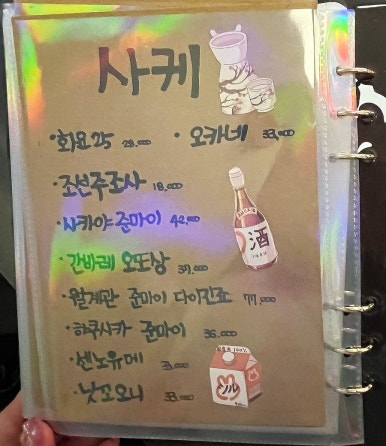 사케
·화요25 29.000 ·오카네 33.000
·조선주조사 18.000
·사카야 준마이 42.000
·간바레 오또상 39.000
·월계관 준마이 다이긴죠 77.000
·하쿠시카 준마이 36.000
·센노유메 33.000
·낫쵸오니 33.000
酒
ソル